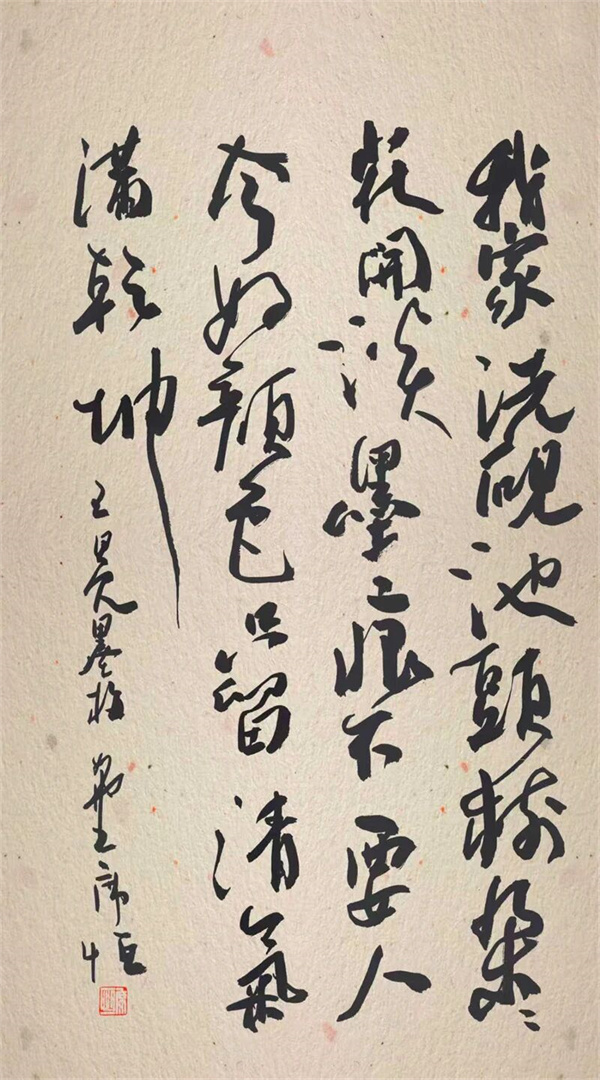 我家洗硯池頭樹朵〻
花開淡墨痕不要人
夸好顏色只留清氣
滿乾坤
王冕墨梅 席恒